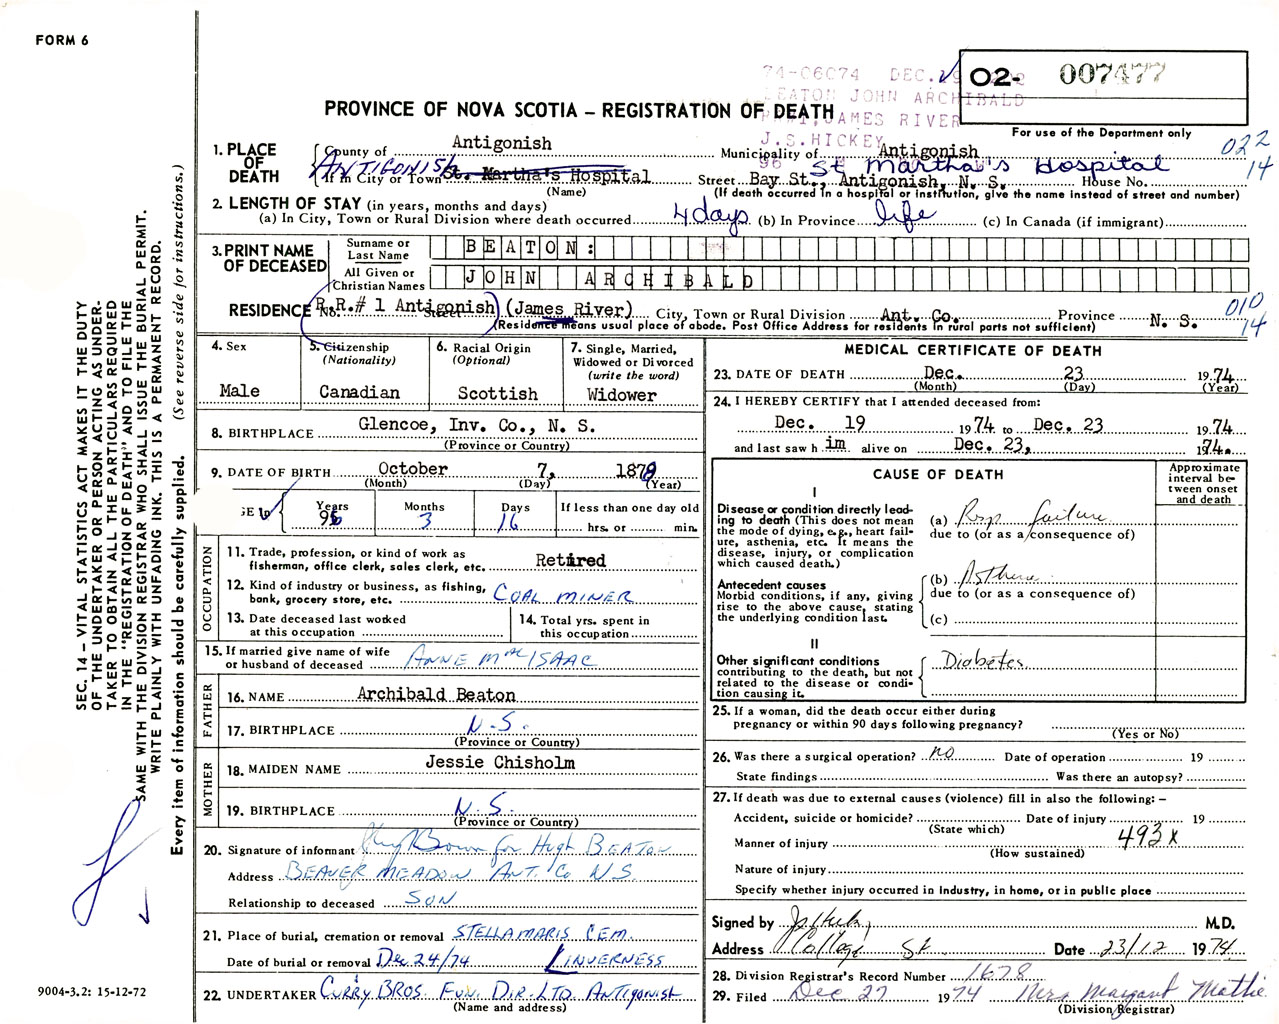 FORM 6
74-06074 DEC.
02- 007477
BEATON JOHN ARCHIBALD
PROVINCE OF NOVA SCOTIA – REGISTRATION OF DEATH
JAMES RIVER
For use of the Department only
J.S.HICKEY
022
14
1. PLACE OF DEATH
County of Antigonish Municipality of Antigonish
ANTIGONISH St Martha's Hospital
If in City or Town St. Martha's Hospital Street Bay St., Antigonish, N. S. House No.
(Name) (If death occurred in a hospital or institution, give the name instead of street and number)
2. LENGTH OF STAY (in years, months and days)
(a) In City, Town or Rural Division where death occurred 4 days (b) In Province life (c) In Canada (if immigrant)
3. PRINT NAME OF DECEASED
Surname or Last Name BEATON:
All Given or Christian Names JOHN ARCHIBALD
010
14
RESIDENCE No. R.R.# 1 Antigonish Street (James River) City, Town or Rural Division Ant. Co. Province N. S.
(Residence means usual place of abode. Post Office Address for residents in rural parts not sufficient)
4. Sex
Male
5. Citizenship
(Nationality)
Canadian
6. Racial Origin
(Optional)
Scottish
7. Single, Married,
Widowed or Divorced
(write the word)
Widower
8. BIRTHPLACE Glencoe, Inv. Co., N. S.
(Province or Country)
9. DATE OF BIRTH October 7, 1878
(Month) (Day) (Year)
GE In Years 96 Months 3 Days 16 If less than one day old
hrs. or min.
OCCUPATION
11. Trade, profession, or kind of work as
fisherman, office clerk, sales clerk, etc. Retired
12. Kind of industry or business, as fishing,
bank, grocery store, etc. COAL MINER
13. Date deceased last worked
at this occupation
14. Total yrs. spent in
this occupation
15. If married give name of wife
or husband of deceased ANNE MacISAAC
FATHER
16. NAME Archibald Beaton
17. BIRTHPLACE N.S.
(Province or Country)
MOTHER
18. MAIDEN NAME Jessie Chisholm
19. BIRTHPLACE N.S.
(Province or Country)
20. Signature of informant for Hugh BEATON
Address BEAVER MEADOW ANT. Co N.S.
Relationship to deceased SON
21. Place of burial, cremation or removal STELLA MARIS CEM.
Date of burial or removal Dec 24/74 INVERNESS
22. UNDERTAKER CURRY BROS. FUN. DIR. LTD. ANTIGONISH
(Name and address)
MEDICAL CERTIFICATE OF DEATH
23. DATE OF DEATH Dec. 23 1974
(Month) (Day) (Year)
24. I HEREBY CERTIFY that I attended deceased from:
Dec. 19 1974 to Dec. 23 1974
and last saw h im alive on Dec. 23, 1974.
CAUSE OF DEATH
Approximate
interval be-
tween onset
and death
I
Disease or condition directly lead-
ing to death (This does not mean
the mode of dying, e.g., heart fail-
ure, asthenia, etc. It means the
disease, injury, or complication
which caused death.)
(a) Resp failure
due to (or as a consequence of)
Antecedent causes
Morbid conditions, if any, giving
rise to the above cause, stating
the underlying condition last.
(b) Asthma
due to (or as a consequence of)
(c)
II
Other significant conditions
contributing to the death, but not
related to the disease or condi-
tion causing it.
Diabetes
25. If a woman, did the death occur either during
pregnancy or within 90 days following pregnancy?
(Yes or No)
26. Was there a surgical operation? no Date of operation 19
State findings Was there an autopsy?
27. If death was due to external causes (violence) fill in also the following: –
Accident, suicide or homicide? Date of injury 19
(State which)
Manner of injury 493x
(How sustained)
Nature of injury
Specify whether injury occurred in industry, in home, or in public place
Signed by M.D.
Address College St Date 23/12 1974
28. Division Registrar's Record Number 1678
29. Filed Dec 27 1974 Mrs Margaret Mattie
(Division Registrar)
SEC. 14 – VITAL STATISTICS ACT MAKES IT THE DUTY
OF THE UNDERTAKER OR PERSON ACTING AS UNDER-
TAKER TO OBTAIN ALL THE PARTICULARS REQUIRED
IN THE "REGISTRATION OF DEATH" AND TO FILE THE
SAME WITH THE DIVISION REGISTRAR WHO SHALL ISSUE THE BURIAL PERMIT.
WRITE PLAINLY WITH UNFADING INK. THIS IS A PERMANENT RECORD.
Every item of information should be carefully supplied. (See reverse side for instructions.)
9004-3.2: 15-12-72